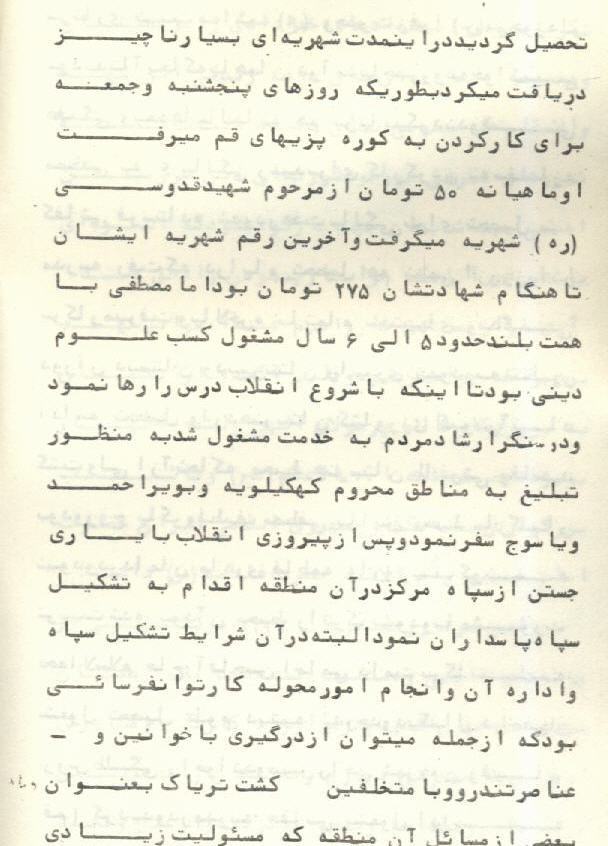 تحصیل گردیددراینمدت شهریه‌ای بسیارناچیز
دریافت میکردبطوریکه روزهای پنجشنبه وجمعه
برای کارکردن به کوره پزیهای قم میرفت
اوماهیانه ۵۰ تومان ازمرحوم شهیدقدوسی
(ره) شهریه میگرفت وآخرین رقم شهریه ایشان
تاهنگام شهادتشان ۲۷۵ تومان بوداما مصطفی با
همت بلندحدود۵ الی ۶ سال مشغول کسب علوم
دینی بودتااینکه باشروع انقلاب درس رارها نمود
ودرسنگرارشادمردم به خدمت مشغول شدبه منظور
تبلیغ به مناطق محروم کهکیلویه وبویراحمد
ویاسوج سفرنمودوپس ازپیروزی انقلاب بایاری
جستن ازسپاه مرکزدرآن منطقه اقدام به تشکیل
سپاه پاسداران نمودالبته‌درآن شرایط تشکیل سپاه
واداره آن وانجام امورمحوله کارتوانفرسائی
بودکه ازجمله میتوان ازدرگیری باخوانین و -
عناصرتندرووبا متخلفین کشت تریاک بعنوان
بعضی ازمسائل آن منطقه که مسئولیت زیادی